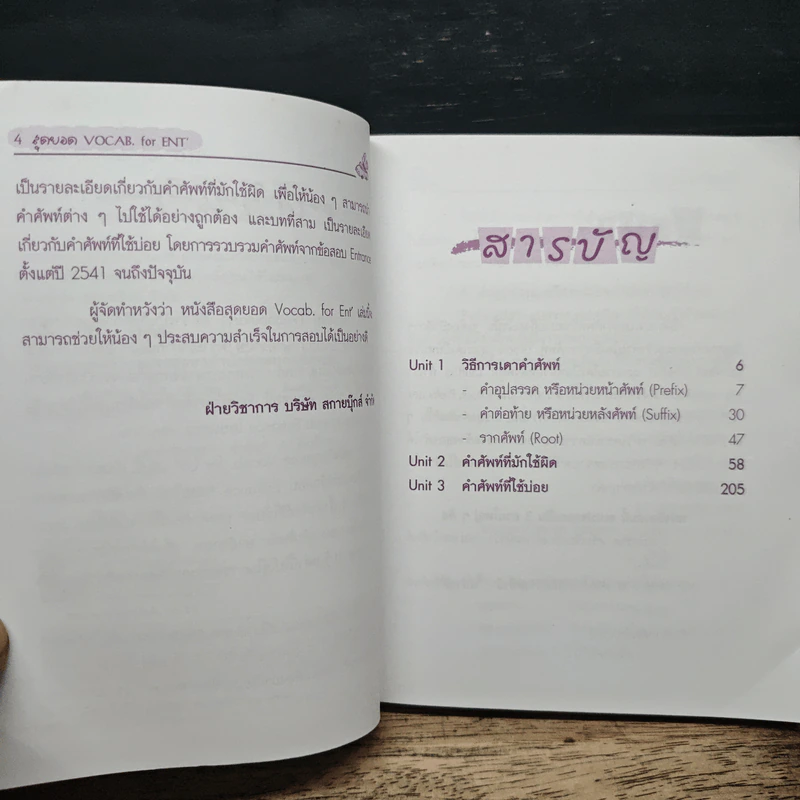 4 สุดยอด VOCAB. for ENT'
เป็นรายละเอียดเกี่ยวกับคำศัพท์ที่มักใช้ผิด เพื่อให้น้อง ๆ สามารถนำ
คำศัพท์ต่าง ๆ ไปใช้ได้อย่างถูกต้อง และบทที่สาม เป็นรายละเอียด
เกี่ยวกับคำศัพท์ที่ใช้บ่อย โดยการรวบรวมคำศัพท์จากข้อสอบ Entrance
ตั้งแต่ปี 2541 จนถึงปัจจุบัน
ผู้จัดทำหวังว่า หนังสือสุดยอด Vocab. for Ent' เล่มนี้จะ
สามารถช่วยให้น้อง ๆ ประสบความสำเร็จในการสอบได้เป็นอย่างดี
ฝ่ายวิชาการ บริษัท สกายบุ๊กส์ จำกัด
สารบัญ
Unit 1 วิธีการเดาคำศัพท์ 6
- คำอุปสรรค หรือหน่วยหน้าศัพท์ (Prefix) 7
- คำต่อท้าย หรือหน่วยหลังศัพท์ (Suffix) 30
- รากศัพท์ (Root) 47
Unit 2 คำศัพท์ที่มักใช้ผิด 58
Unit 3 คำศัพท์ที่ใช้บ่อย 205